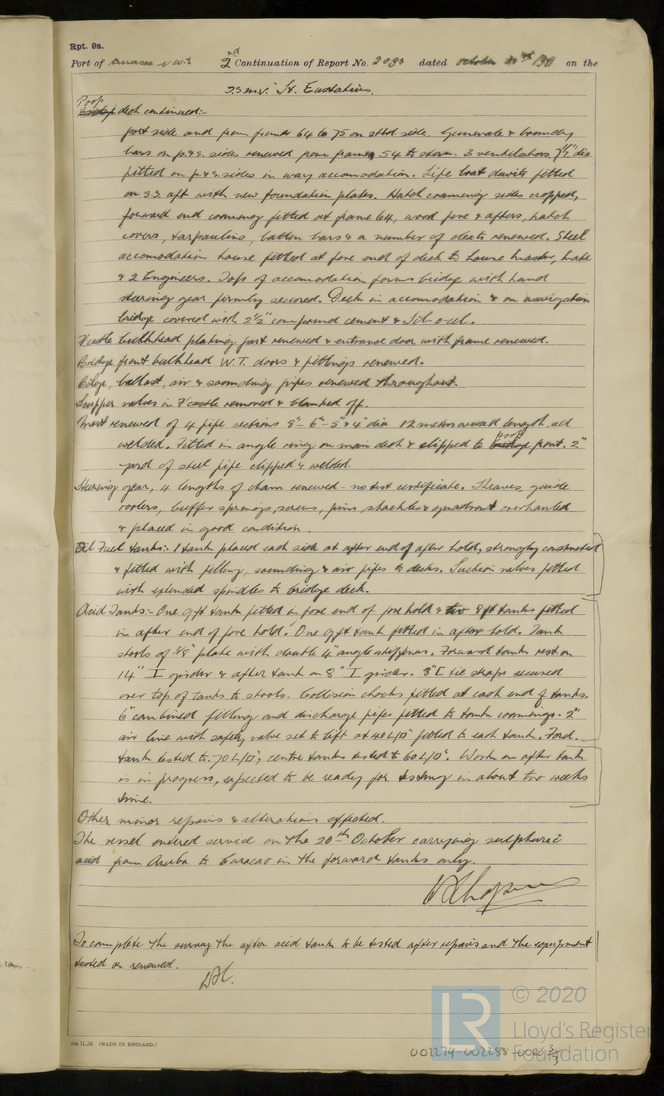 Rpt. 9a.
Port of Curacao N.W.I. 2nd Continuation of Report No. 2090 dated October 20th 1941 on the
"S.S.M.V." St. Eustatius.
Poop deck continued:-
port side and from frame 64 to 75 on stbd side. Gunwale & boundary
bars on p.&s. sides renewed from frame 54 to stern. 3 ventilators 7½" dia
fitted on p.&s. sides in way accomodation. Life boat davits fitted
on S.S. aft with new foundation plates. Hatch coamings sides cropped,
forward end coaming fitted at frame 64, wood fore & afters, hatch
covers, tarpaulins, batten bars & a number of cleats renewed. Steel
accomodation house fitted at fore end of deck to house master, mate
& 2 Engineers. Top of accomodation forms bridge with hand
steering gear firmly secured. Deck in accomodation & on navigation
bridge covered with 2½" compound cement &
F'castle bulkhead plating part renewed & entrance door with frame renewed.
Bridge front bulkhead W.T. doors & fittings renewed.
Bilge, ballast, air & sounding pipes renewed throughout.
Scupper valves in F'castle removed & blanked off.
Mast renewed of 4 pipe sections 8"- 6"- 5" & 4" dia 12 meters overall length all
welded. Fitted in angle ring on main deck & clipped to poop front. 2"
yard of steel pipe clipped & welded.
Steering gear, 4 lengths of chain renewed - no test certificate. Sheaves guide
rollers, buffer springs, screws, pins, shackles & quadrant overhauled
& placed in good condition.
Oil Fuel tanks:- 1 tank placed each side at after end of after hold, strongly constructed
& fitted with filling, sounding & air pipes to decks. Suction valves fitted
with extended spindles to bridge deck.
Acid Tanks:- One 9 ft tank fitted in fore end of fore hold & two 8 ft tanks fitted
in after end of fore hold. One 9 ft tank fitted in after hold. Tank
stools of 3/8" plate with double 4" angle stiffeners. Forward tanks rest on
14" I girder & after tank on 8" I girder. 3" [ tie straps secured
over top of tanks to stools. Collision chocks fitted at each end of tanks.
6" combined filling and discharge pipes fitted to tank coamings. 2"
air line with safety valve set to lift at 40 L/□" fitted to each tank. Forwd.
tank tested to 70 L/□", centre tanks tested to 60 L/□". Work on after tank
is in progress, expected to be ready for testing in about two weeks
time.
Other minor repairs & alterations effected.
The vessel entered service on the 20th October carrying sulphuric
acid from Aruba to Curacao in the forward tanks only.
To complete the survey the after acid tank to be tested after repairs and the equipment
tested or renewed.
(MADE IN ENGLAND.)
LR © 2020
Lloyd's Register
Foundation
002279-002288-0062 3/3